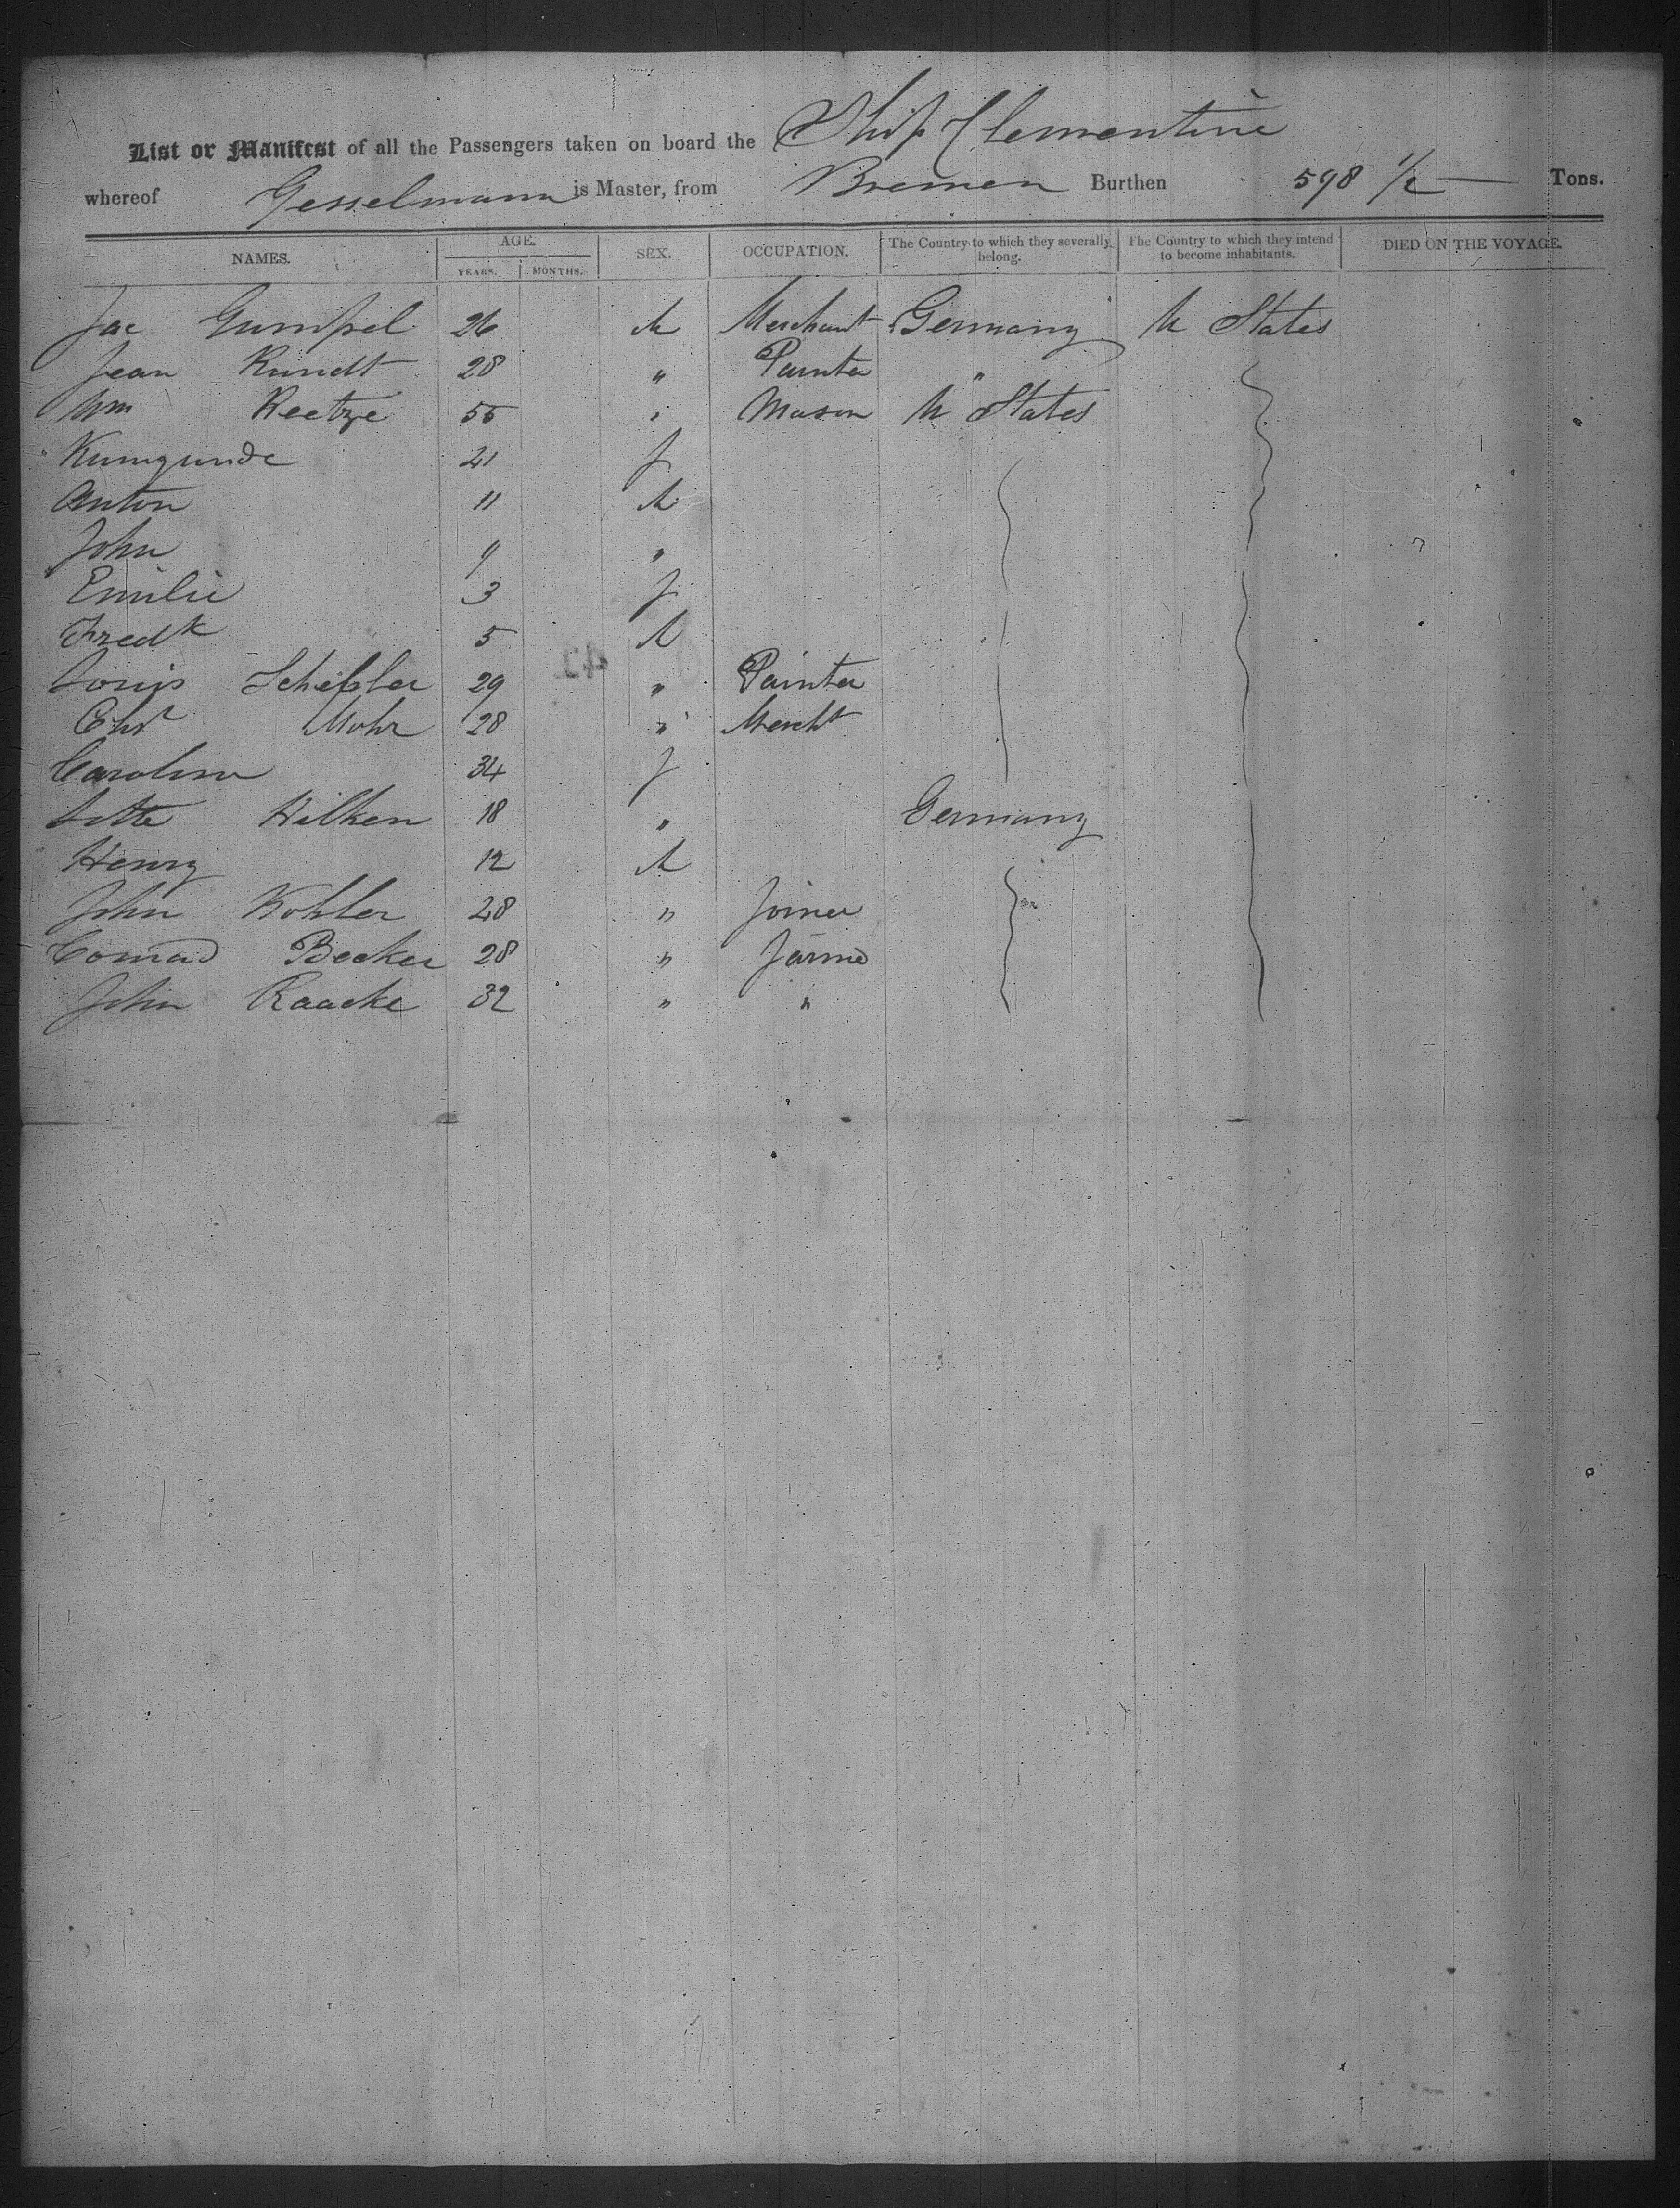 List or Manifest of all the Passengers taken on board the Ship Clementine
whereof Gesselmann is Master, from Bremen Burthen 598 1/2 — Tons.
NAMES. AGE. YEARS. MONTHS. SEX. OCCUPATION. The Country to which they severally belong. The Country to which they intend to become inhabitants. DIED ON THE VOYAGE.
Jac Gumpel 26 M Merchant Germany U States
Jean Rundt 28 " Painter "
Wm Reetze 55 " Mason U States
Kunigunde 21 f
Anton 11 M
John 9 "
Emilie 3 f
Fredk 5 M
Louis Scheßler 29 " Painter
Chr Mohr 28 " Mercht
Caroline 34 f
Lotte Wilken 18 " Germany
Henry 12 M
John Kohler 28 " Joiner
Conrad Becker 28 " Farmer
John Raacke 32 " "
42